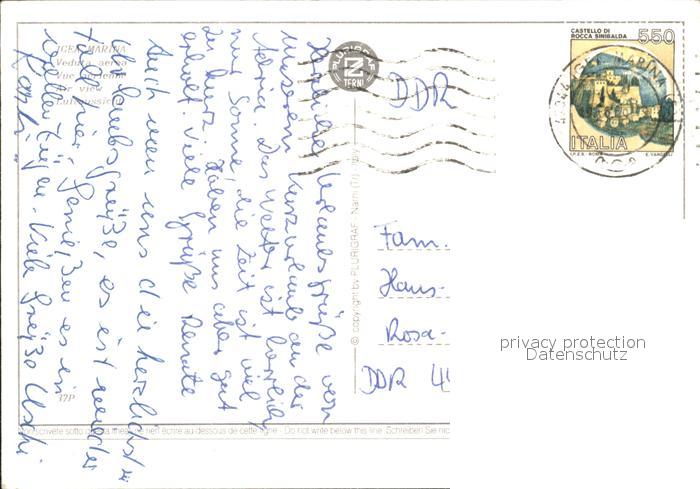 IGEA MARINA
Veduta aerea
Vue aérienne
Air view
Luftansicht
PLURIGRAF
TERNI
CASTELLO DI
ROCCA SINIBALDA
550
ITALIA
I.P.Z.S. - ROMA
MARINA
DDR
Fam.
Hans-
Rosa-
DDR 44
© copyright by PLURIGRAF - Narni (TR) - Italy
Herzliche Urlaubsgrüße von
unserem Kurzurlaub an der
Adria. Das Wetter ist herrlich
nur Sonne, die Zeit ist viel
zu kurz. Haben uns aber gut
erholt. Viele Grüße Renate
Auch von uns die herzlichsten
Urlaubsgrüße, es ist wunder
hier. Genießen es in
vollen Zügen. Viele Grüße Uschi
37P
ne rien écrire au-dessous de cette ligne - Do not write below this line
privacy protection
Datenschutz